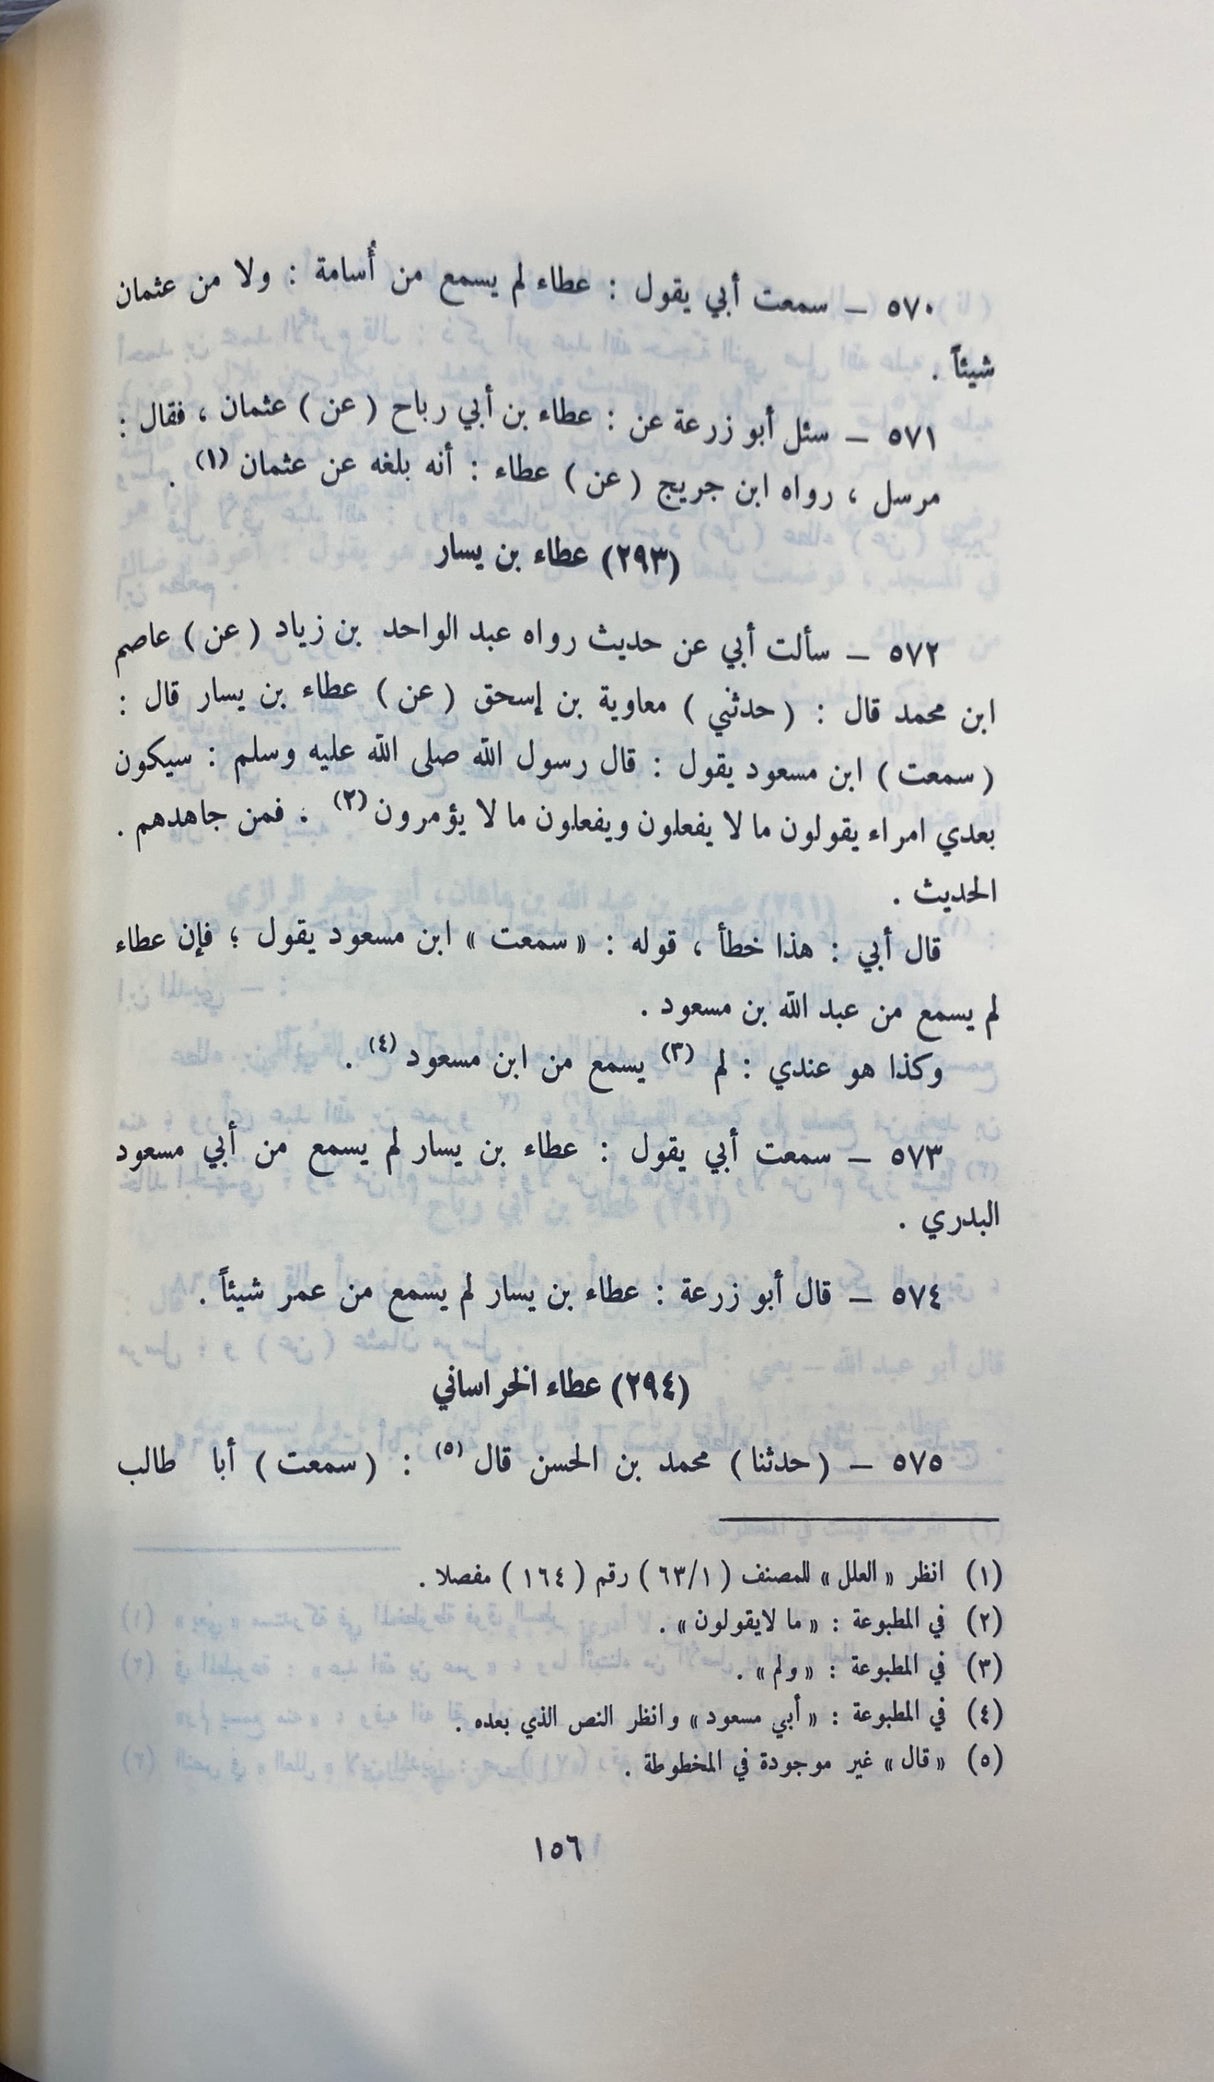 ٥٧٠ ــ سمعت أبي يقول : عطاء لم يسمع من أُسامة : ولا من عثمان
شيئاً .
٥٧١ ــ سئل أبو زرعة عن : عطاء بن أبي رباح ( عن ) عثمان ، فقال :
مرسل ، رواه ابن جريج ( عن ) عطاء : أنه بلغه عن عثمان (١) .
(٢٩٣) عطاء بن يسار
٥٧٢ ــ سألت أبي عن حديث رواه عبد الواحد بن زياد ( عن ) عاصم
ابن محمد قال : ( حدثني ) معاوية بن إسحق ( عن ) عطاء بن يسار قال :
( سمعت ) ابن مسعود يقول : قال رسول الله صلى الله عليه وسلم : سيكون
بعدي امراء يقولون ما لا يفعلون ويفعلون ما لا يؤمرون (٢) . فمن جاهدهم .
الحديث .
قال أبي : هذا خطأ ، قوله : « سمعت » ابن مسعود يقول ؛ فإن عطاء
لم يسمع من عبد الله بن مسعود .
وكذا هو عندي : لم (٣) يسمع من ابن مسعود (٤) .
٥٧٣ ــ سمعت أبي يقول : عطاء بن يسار لم يسمع من أبي مسعود
البدري .
٥٧٤ ــ قال أبو زرعة : عطاء بن يسار لم يسمع من عمر شيئاً .
(٢٩٤) عطاء الخراساني
٥٧٥ ــ ( حدثنا ) محمد بن الحسن قال (٥) : ( سمعت ) أبا طالب
(١) انظر « العلل » للمصنف ( ٦٣/١ ) رقم ( ١٦٤ ) مفصلا .
(٢) في المطبوعة : « ما لايقولون » .
(٣) في المطبوعة : « ولم » .
(٤) في المطبوعة : « أبي مسعود » وانظر النص الذي بعده .
(٥) « قال » غير موجودة في المخطوطة .
١٥٦